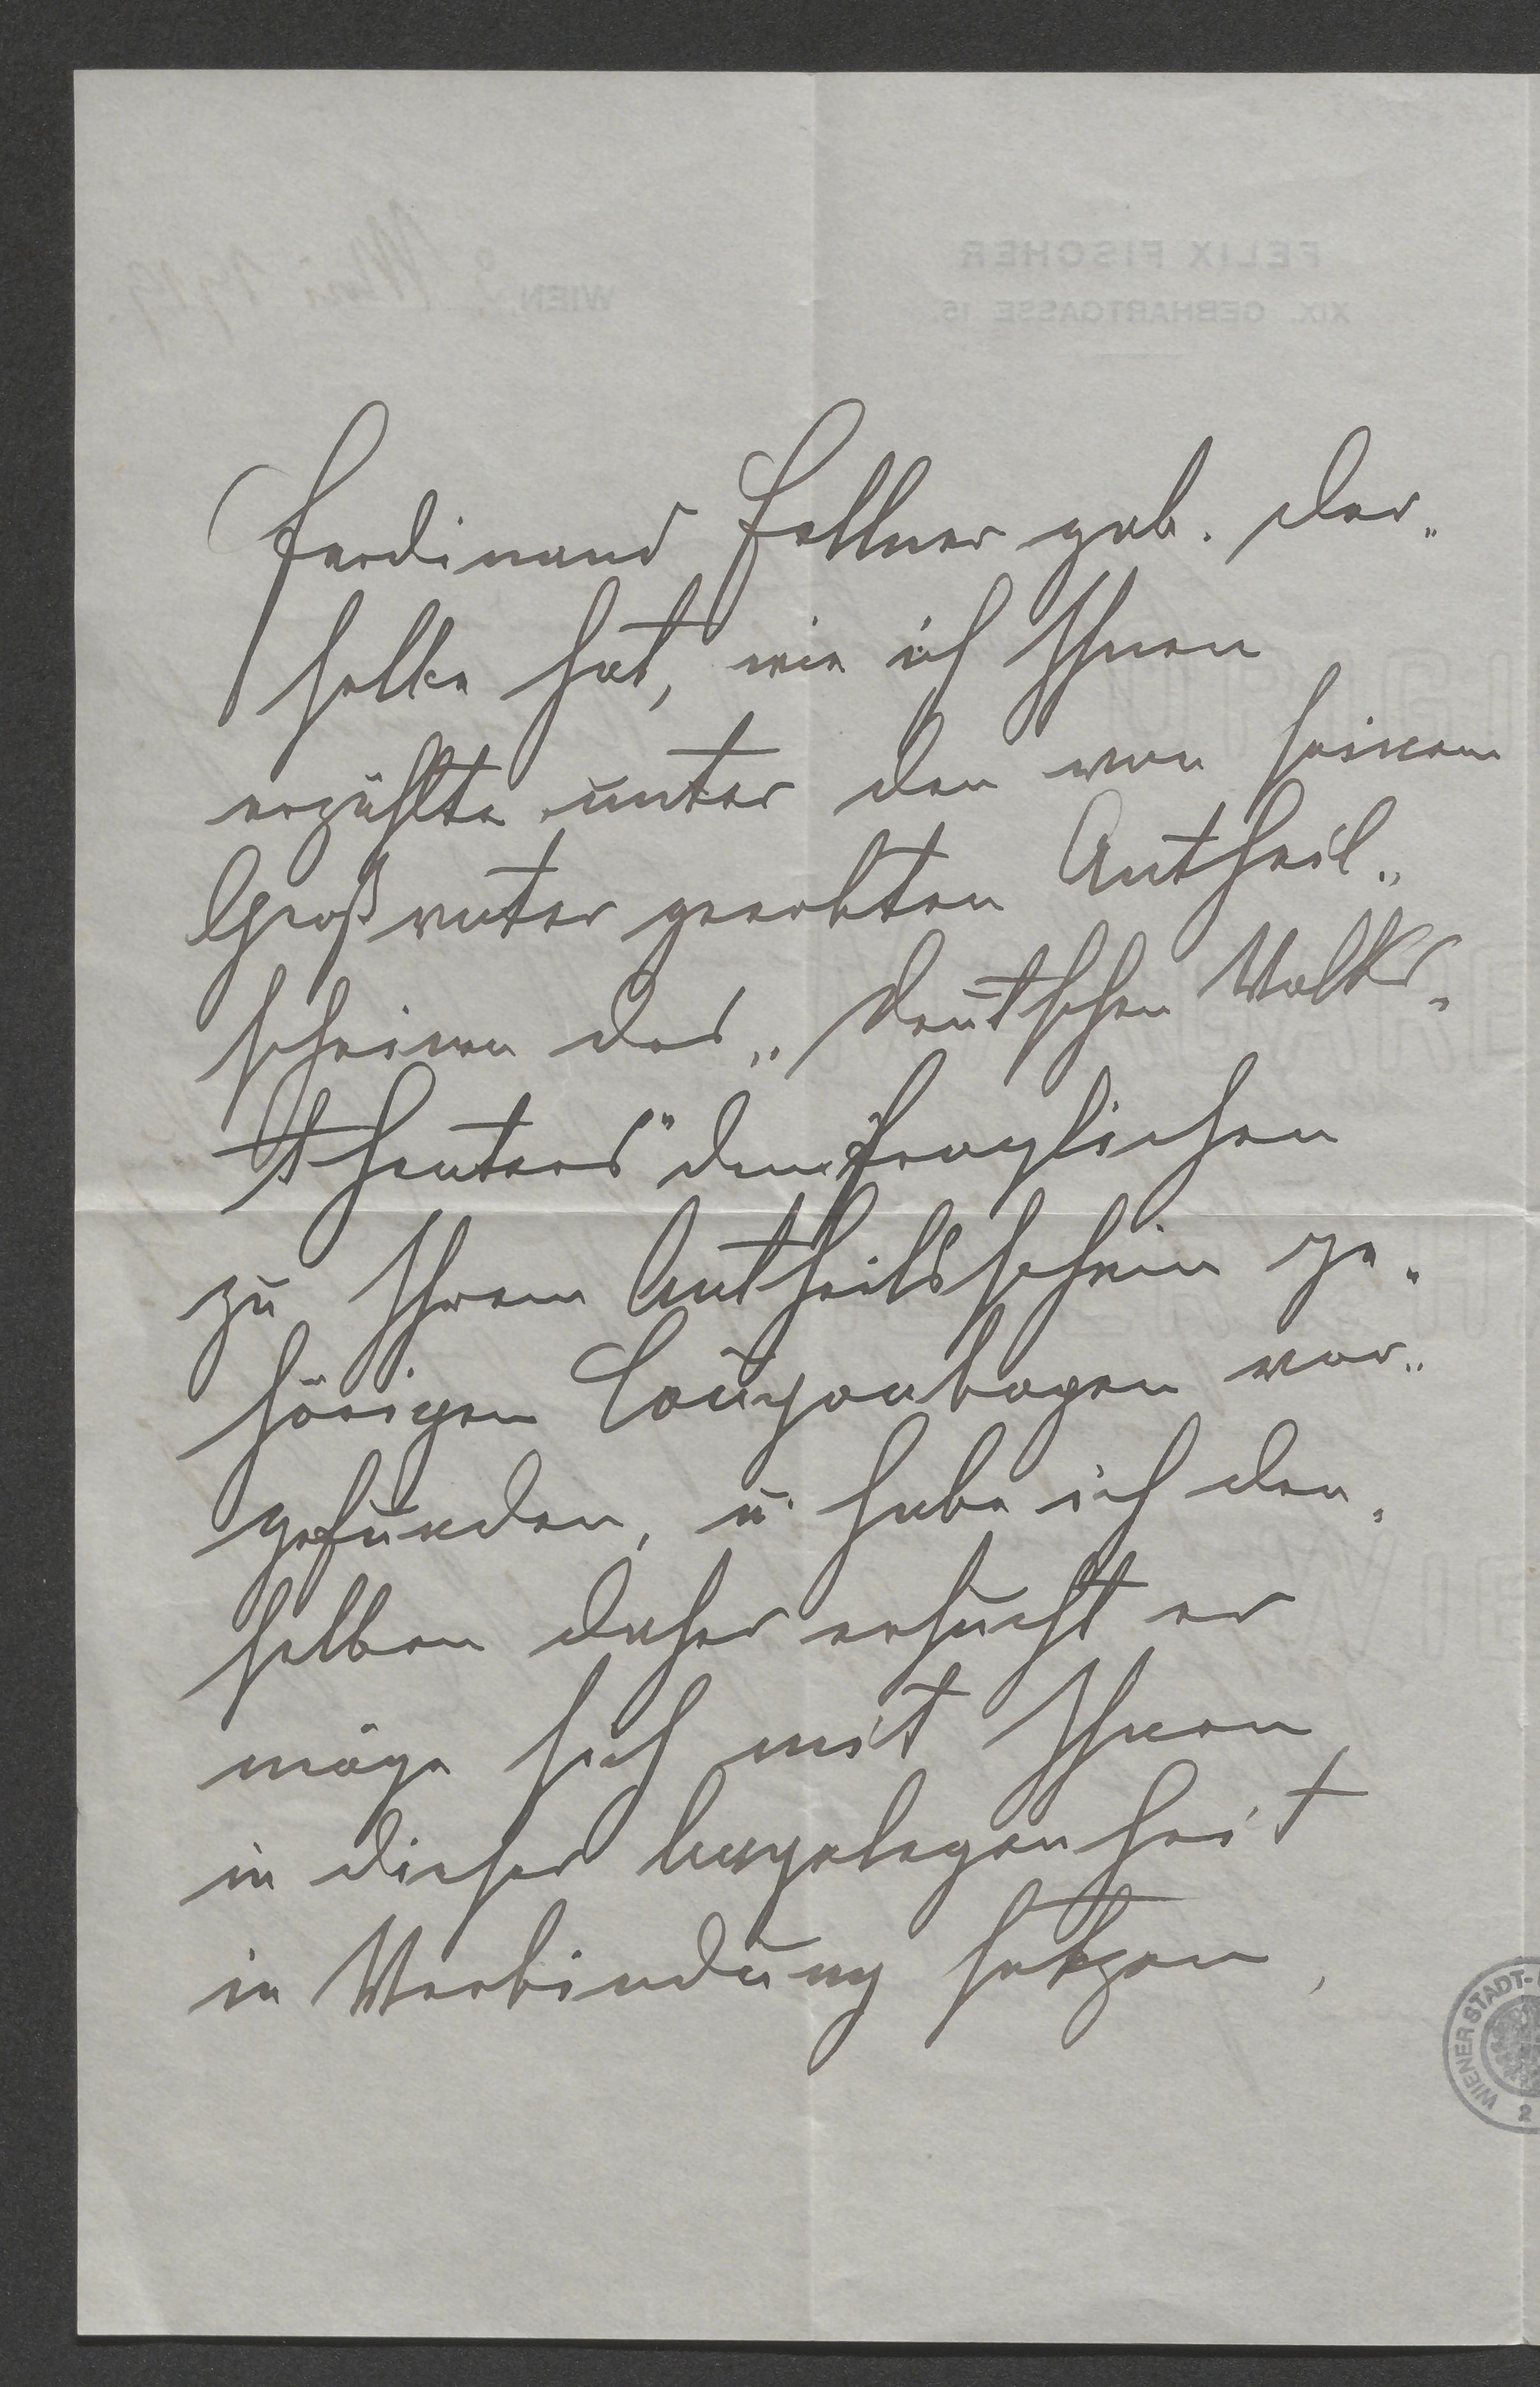 Ferdinand Fellner gab. Der„
selbe hat, wie ich Ihnen
erzählte unter den von seinem
Großvater geerbten Antheil„
scheinen des „Deutschen Volks„
theaters" den fraglichen
zu Ihrem Antheilsschein ge„
hörigen Couponbogen vor„
gefunden, u. habe ich den„
selben daher ersucht er
möge sich mit Ihnen
in dieser Angelegenheit
in Verbindung setzen,
FELIX FISCHER
XIX. GEBHARTGASSE 15.
WIEN, 2. Mai
WIENER STADT-
2